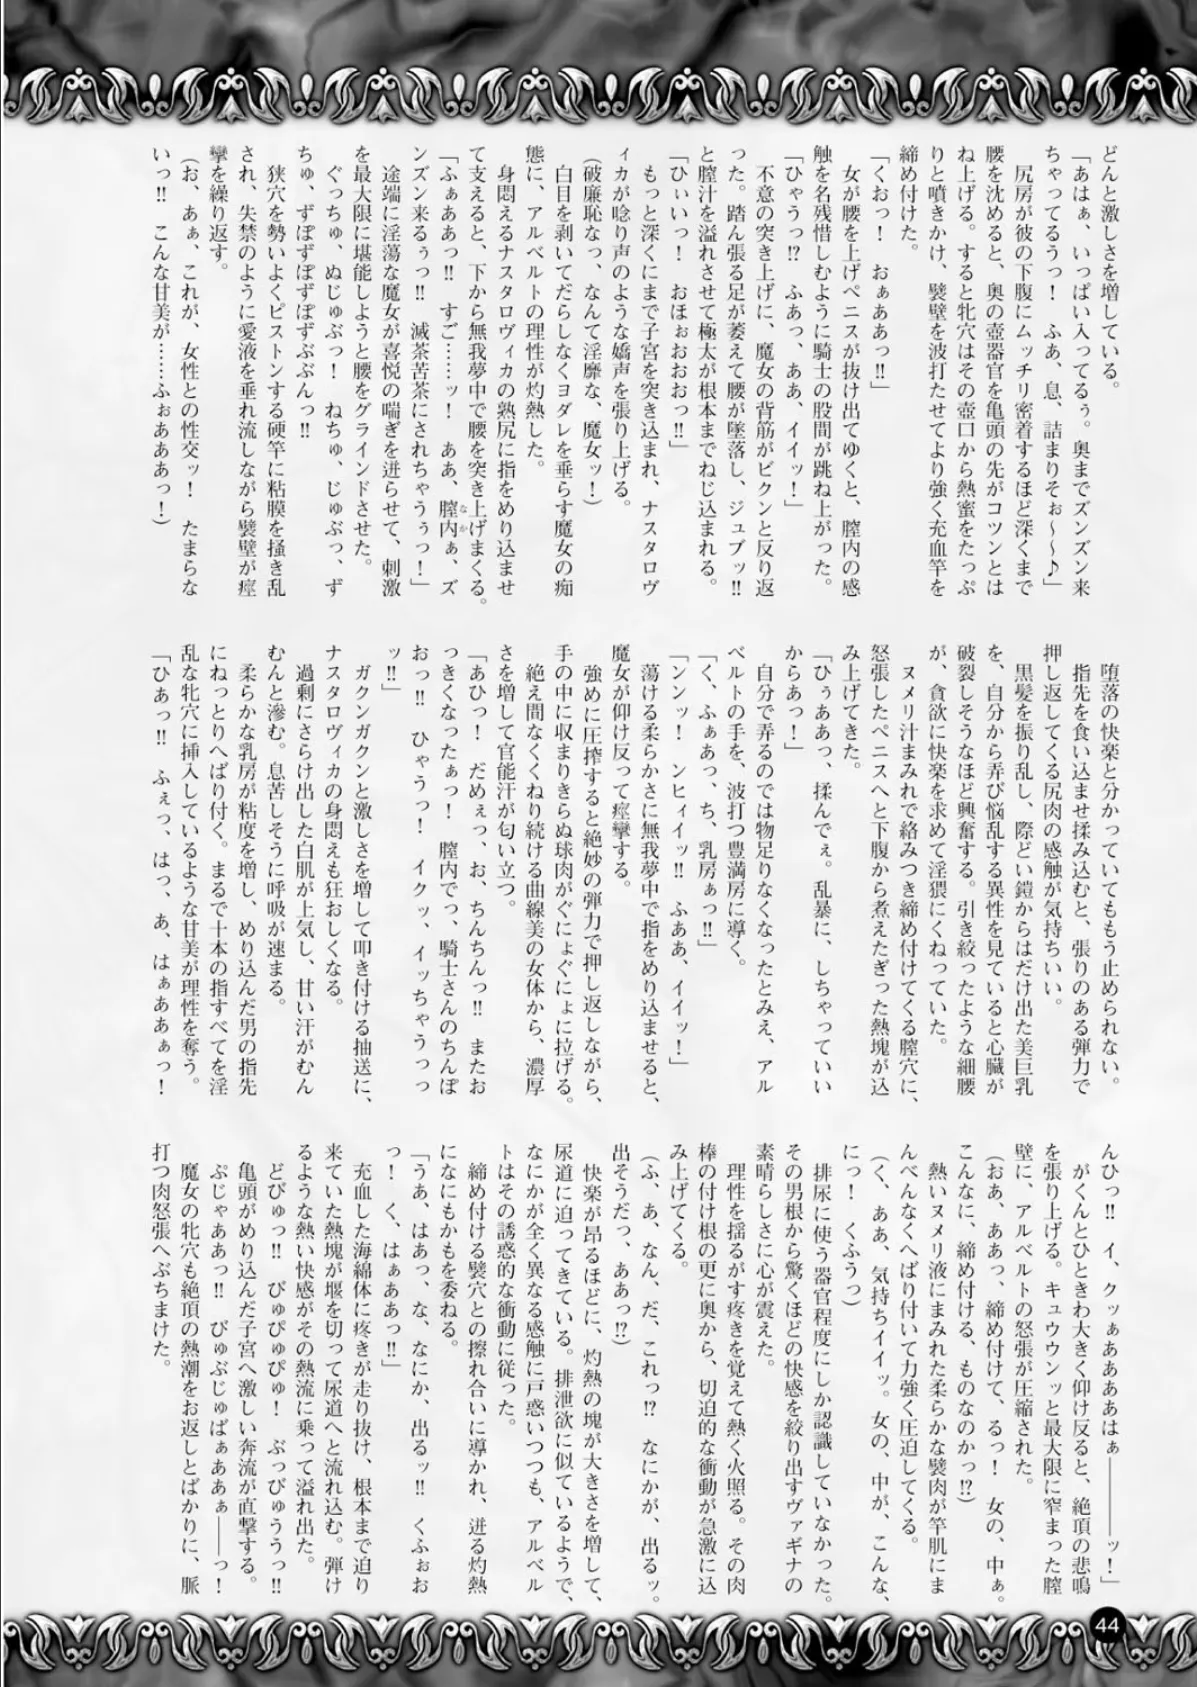 どんと激しさを増している。
「あはぁ、いっぱい入ってるぅ。奥までズンズン来
ちゃってるうっ！　ふあ、息、詰まりそぉ〜〜♪」
　尻房が彼の下腹にムッチリ密着するほど深くまで
腰を沈めると、奥の壺器官を亀頭の先がコツンとは
ね上げる。すると牝穴はその壺口から熱蜜をたっぷ
りと噴きかけ、襞壁を波打たせてより強く充血竿を
締め付けた。
「くおっ！　おぁああっ‼」
　女が腰を上げペニスが抜け出てゆくと、膣内の感
触を名残惜しむように騎士の股間が跳ね上がった。
「ひゃうっ⁉　ふあっ、ああ、イイッ！」
　不意の突き上げに、魔女の背筋がビクンと反り返
った。踏ん張る足が萎えて腰が墜落し、ジュブッ‼
と膣汁を溢れさせて極太が根本までねじ込まれる。
「ひぃいっ！　おほぉおおおっ‼」
　もっと深くにまで子宮を突き込まれ、ナスタロヴ
ィカが唸り声のような嬌声を張り上げる。
（破廉恥なっ、なんて淫靡な、魔女ッ！）
　白目を剥いてだらしなくヨダレを垂らす魔女の痴
態に、アルベルトの理性が灼熱した。
　身悶えるナスタロヴィカの熟尻に指をめり込ませ
て支えると、下から無我夢中で腰を突き上げまくる。
「ふぁああっ‼　すご……ッ！　ああ、膣内ぁ、ズ
ンズン来るぅっ‼　滅茶苦茶にされちゃうぅっ！」
　途端に淫蕩な魔女が喜悦の喘ぎを迸らせて、刺激
を最大限に堪能しようと腰をグラインドさせた。
　ぐっちゅ、ぬじゅぶっ！　ねちゅ、じゅぶっ、ず
ちゅ、ずぽずぽずぽずぶぶんっ‼
　狭穴を勢いよくピストンする硬竿に粘膜を掻き乱
され、失禁のように愛液を垂れ流しながら襞壁が痙
攣を繰り返す。
（お、あぁ、これが、女性との性交ッ！　たまらな
いっ‼　こんな甘美が……ふぉあああっ！）
　堕落の快楽と分かっていてももう止められない。
　指先を食い込ませ揉み込むと、張りのある弾力で
押し返してくる尻肉の感触が気持ちいい。
　黒髪を振り乱し、際どい鎧からはだけ出た美巨乳
を、自分から弄び悩乱する異性を見ていると心臓が
破裂しそうなほど興奮する。引き絞ったような細腰
が、貪欲に快楽を求めて淫猥にくねっていた。
　ヌメリ汁まみれで絡みつき締め付けてくる膣穴に、
怒張したペニスへと下腹から煮えたぎった熱塊が込
み上げてきた。
「ひぅああっ、揉んでぇ。乱暴に、しちゃっていい
からあっ！」
　自分で弄るのでは物足りなくなったとみえ、アル
ベルトの手を、波打つ豊満房に導く。
「く、ふぁあっ、ち、乳房ぁっ‼」
「ンンッ！　ンヒィイッ‼　ふああ、イイッ！」
　蕩ける柔らかさに無我夢中で指をめり込ませると、
魔女が仰け反って痙攣する。
　強めに圧搾すると絶妙の弾力で押し返しながら、
手の中に収まりきらぬ球肉がぐにょぐにょに拉げる。
　絶え間なくくねり続ける曲線美の女体から、濃厚
さを増して官能汗が匂い立つ。
「あひっ！　だめぇっ、お、ちんちんっ‼　またお
つきくなったぁっ！　膣内でっ、騎士さんのちんぽ
おっ‼　ひゃうっ！　イクッ、イッちゃうっっ
ッ‼」
　ガクンガクンと激しさを増して叩き付ける抽送に、
ナスタロヴィカの身悶えも狂おしくなる。
　過剰にさらけ出した白肌が上気し、甘い汗がむん
むんと滲む。息苦しそうに呼吸が速まる。
　柔らかな乳房が粘度を増し、めり込んだ男の指先
にねっとりへばり付く。まるで十本の指すべてを淫
乱な牝穴に挿入しているような甘美が理性を奪う。
「ひあっ‼　ふぇっ、はっ、あ、はぁああぁっ！
んひっ‼　イ、クッぁああああはぁ――――ッ！」
　がくんとひときわ大きく仰け反ると、絶頂の悲鳴
を張り上げる。キュウウンッと最大限に窄まった膣
壁に、アルベルトの怒張が圧縮された。
（おあ、ああっ、締め付けて、るっ！　女の、中ぁ。
こんなに、締め付ける、ものなのかっ⁉）
　熱いヌメリ液にまみれた柔らかな襞肉が竿肌にま
んべんなくへばり付いて力強く圧迫してくる。
（く、ああ、気持ちイイッ。女の、中が、こんな、
にっ！　くふうっ）
　排尿に使う器官程度にしか認識していなかった。
その男根から驚くほどの快感を絞り出すヴァギナの
素晴らしさに心が震えた。
　理性を揺るがす疼きを覚えて熱く火照る。その肉
棒の付け根の更に奥から、切迫的な衝動が急激に込
み上げてくる。
（ふ、あ、なん、だ、これっ⁉　なにかが、出るッ。
出そうだっ、ああっ⁉）
　快楽が昂るほどに、灼熱の塊が大きさを増して、
尿道に迫ってきている。排泄欲に似ているようで、
なにかが全く異なる感触に戸惑いつつも、アルベル
トはその誘惑的な衝動に従った。
　締め付ける襞穴との擦れ合いに導かれ、迸る灼熱
になにもかもを委ねる。
「うあ、はあっ、な、なにか、出るッ‼　くふぉお
っ！　く、はぁああっ‼」
　充血した海綿体に疼きが走り抜け、根本まで迫り
来ていた熱塊が堰を切って尿道へと流れ込む。弾け
るような熱い快感がその熱流に乗って溢れ出た。
　どびゅっ‼　びゅびゅびゅ！　ぶっびゅううっ‼
　亀頭がめり込んだ子宮へ激しい奔流が直撃する。
　ぷじゃああっ‼　びゅぶじゅばぁああぁ――っ！
　魔女の牝穴も絶頂の熱潮をお返しとばかりに、脈
打つ肉怒張へぶちまけた。
なか
44